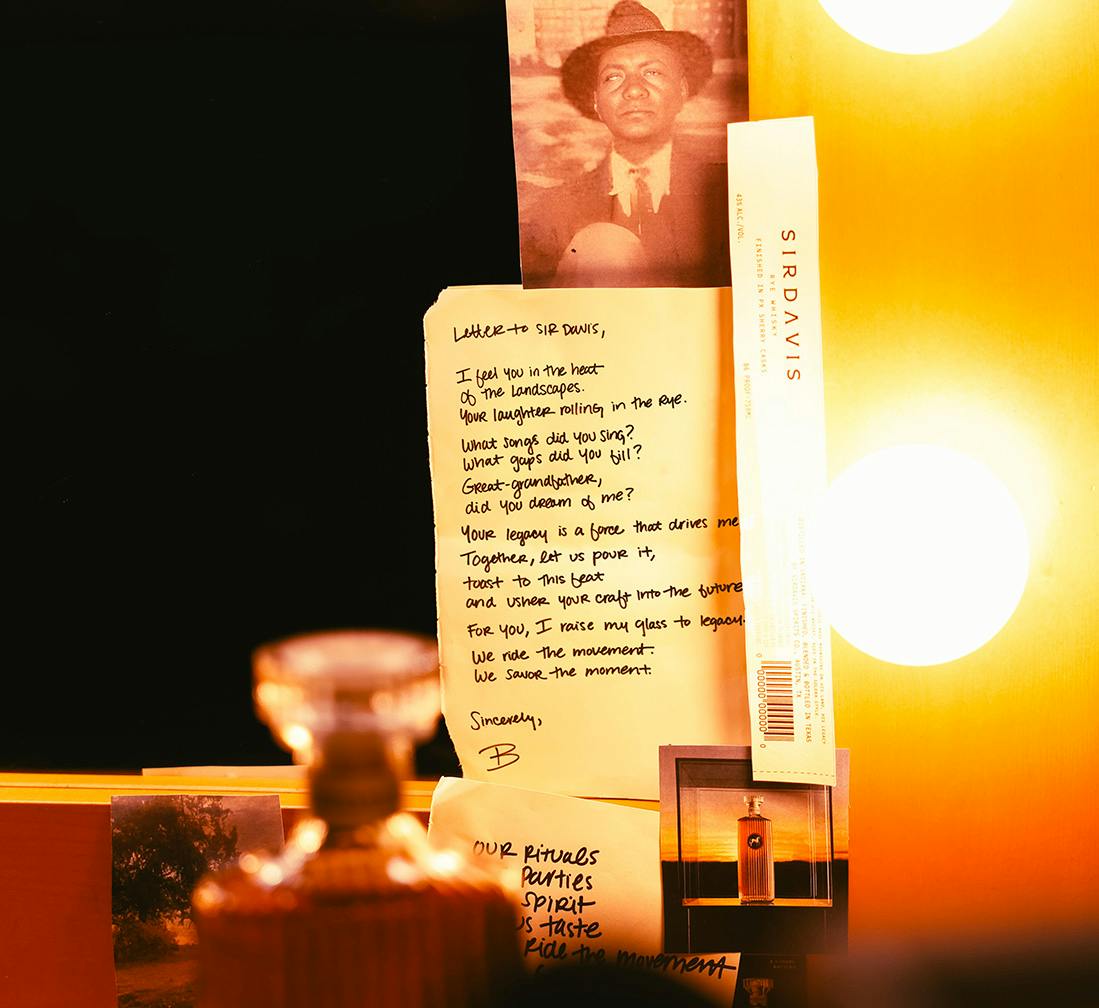 Letter to SIR DAVIS,
I feel you in the heat
of the landscapes.
Your laughter rolling in the Rye.
What songs did you sing?
What gaps did you fill?
Great-grandfather,
did you dream of me?
Your legacy is a force that drives me
Together, let us pour it,
toast to this feat
and usher your craft into the future
For you, I raise my glass to legacy.
We ride the movement.
We savor the moment.
Sincerely,
B
SIRDAVIS
RYE WHISKY
FINISHED IN PX SHERRY CASKS
43% ALC./VOL.
0 00000 00000 0
OUR RITUALS
PARTIES
SPIRIT
US TASTE
RIDE the movement